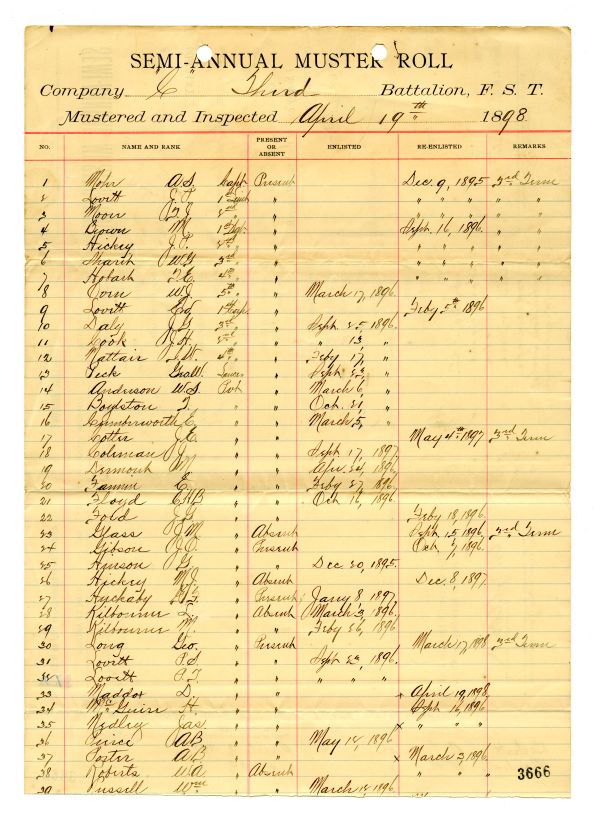 SEMI-ANNUAL MUSTER ROLL
Company "C" Third Battalion, F. S. T.
Mustered and Inspected April 19th 1898
NO. NAME AND RANK PRESENT OR ABSENT ENLISTED RE-ENLISTED REMARKS
1 Mohr A.S. Capt Present Dec. 9, 1895 3rd Term
2 Lovitt 1st " " " " " "
3 Moon " " " " " "
4 Brown M. 1st Sgt. " Sept. 16, 1896. " "
5 Hickey J.T. " " " " " "
6 W.G. 3rd " " " " " "
7 Hobart T.E. 4th " " " " " "
8 Corn W.J. 5th " " March 17, 1896.
9 Lovitt 1st " Feby 5th 1896
10 Daly J.G. " " Sept. 25, 1896.
11 Cook J.H. " " " 13, "
12 Mattair 4th " " Feby 17, "
13 Peck Geo.W. " Sept. "
14 Anderson W.S. Pvt " March 6, "
15 Boydston " " Oct. 31, "
16 C. " " March 5, "
17 Cotter J.E. " " May 4th 1897 3rd Term
18 Coleman J. " " Sept 17, 1897.
19 Dermont " " Apr. 24, 1896.
20 E. " " Feby 27, 1896
21 Floyd C.H.B. " " Oct 1896.
22 Ford J.G. " " Feby 18, 1896.
23 Glass M. " Absent Sept. 15, 1896, 3rd Term
24 Gibson J.O. " Present Oct. 1, 1896.
25 Hinson G. " " Dec. 20, 1895.
26 Hickey M.J. " Absent Dec. 8, 1897.
27 Huckaby " Present Jany 8, 1897.
28 Kilbourne L. " Absent March 3, 1896.
29 Kilbourne M. " " Feby 26, 1896
30 Long Geo. " Present March 17, 1898 3rd Term
31 Lovitt P.S. " " Sept 1896.
32 Lovitt P.T. " " " " "
33 Maddox D. " " x April 19, 1898.
34 McGuire H. " " Sept. 16, 1896
35 Medley Jas. " " x " " "
36 Peirce A.B. " " May 14, 1896
37 Porter A.B. " " x March 3, 1896.
38 Roberts W.A. " Absent " " "
39 Russell Wm " March 14, 1896
3666